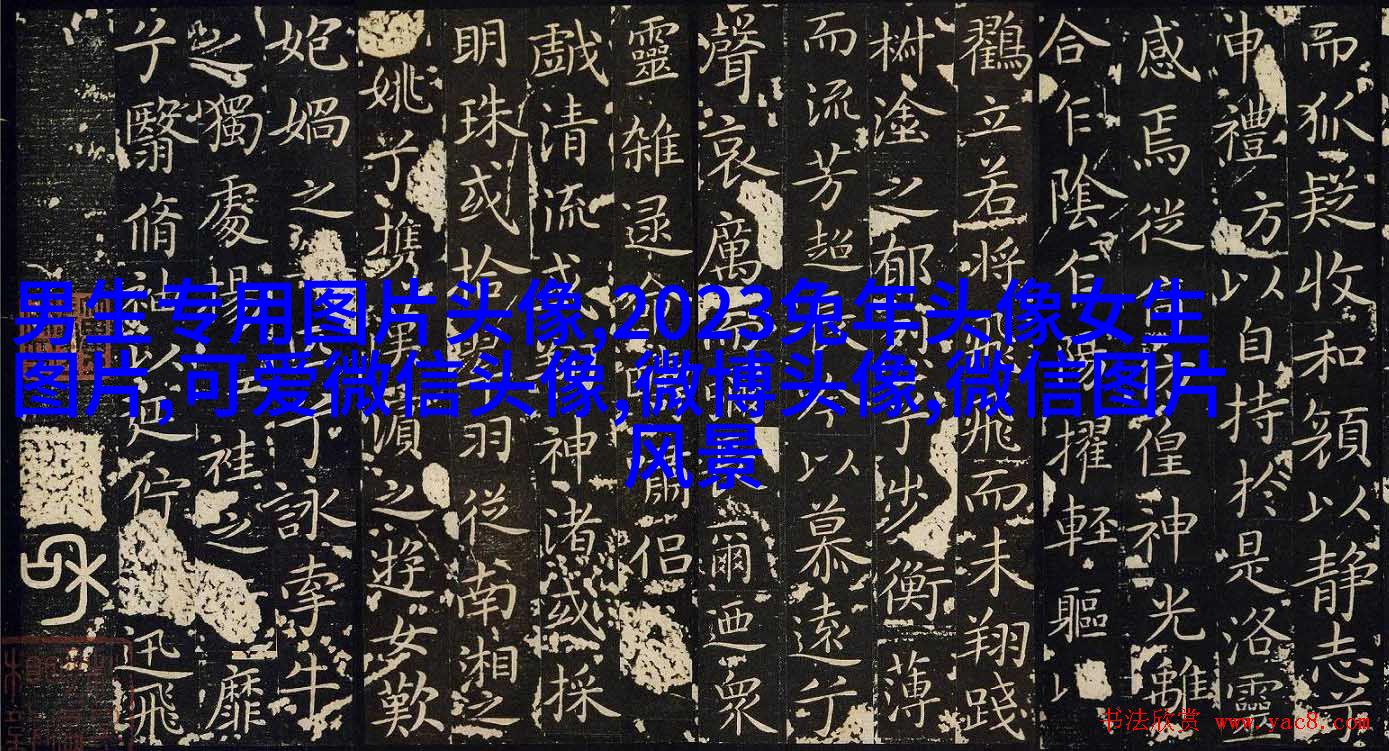 男生专用图片头像,2023兔年头像女生
图片,可爱微信头像,微博头像,微信图片
风景
而狐疑收和顔以静志乎
申禮方以自持於是洛靈
感焉徙彷徨神光離
合乍陰乍陽擢輕軀以
鸛立若将飛而未翔踐
椒塗之郁步衡薄
而流芳超長吟以慕遠兮
聲哀厲而彌爾迺眾
靈雜遝命侶
戯清流或神渚或採
明珠或拾翠羽従南湘之
姚兮攜漢濱之遊女歎
妃媧之兮詠牽牛
之獨處揚袿之靡
兮翳脩袖以延佇迅飛
书法欣赏 www.yac8.com